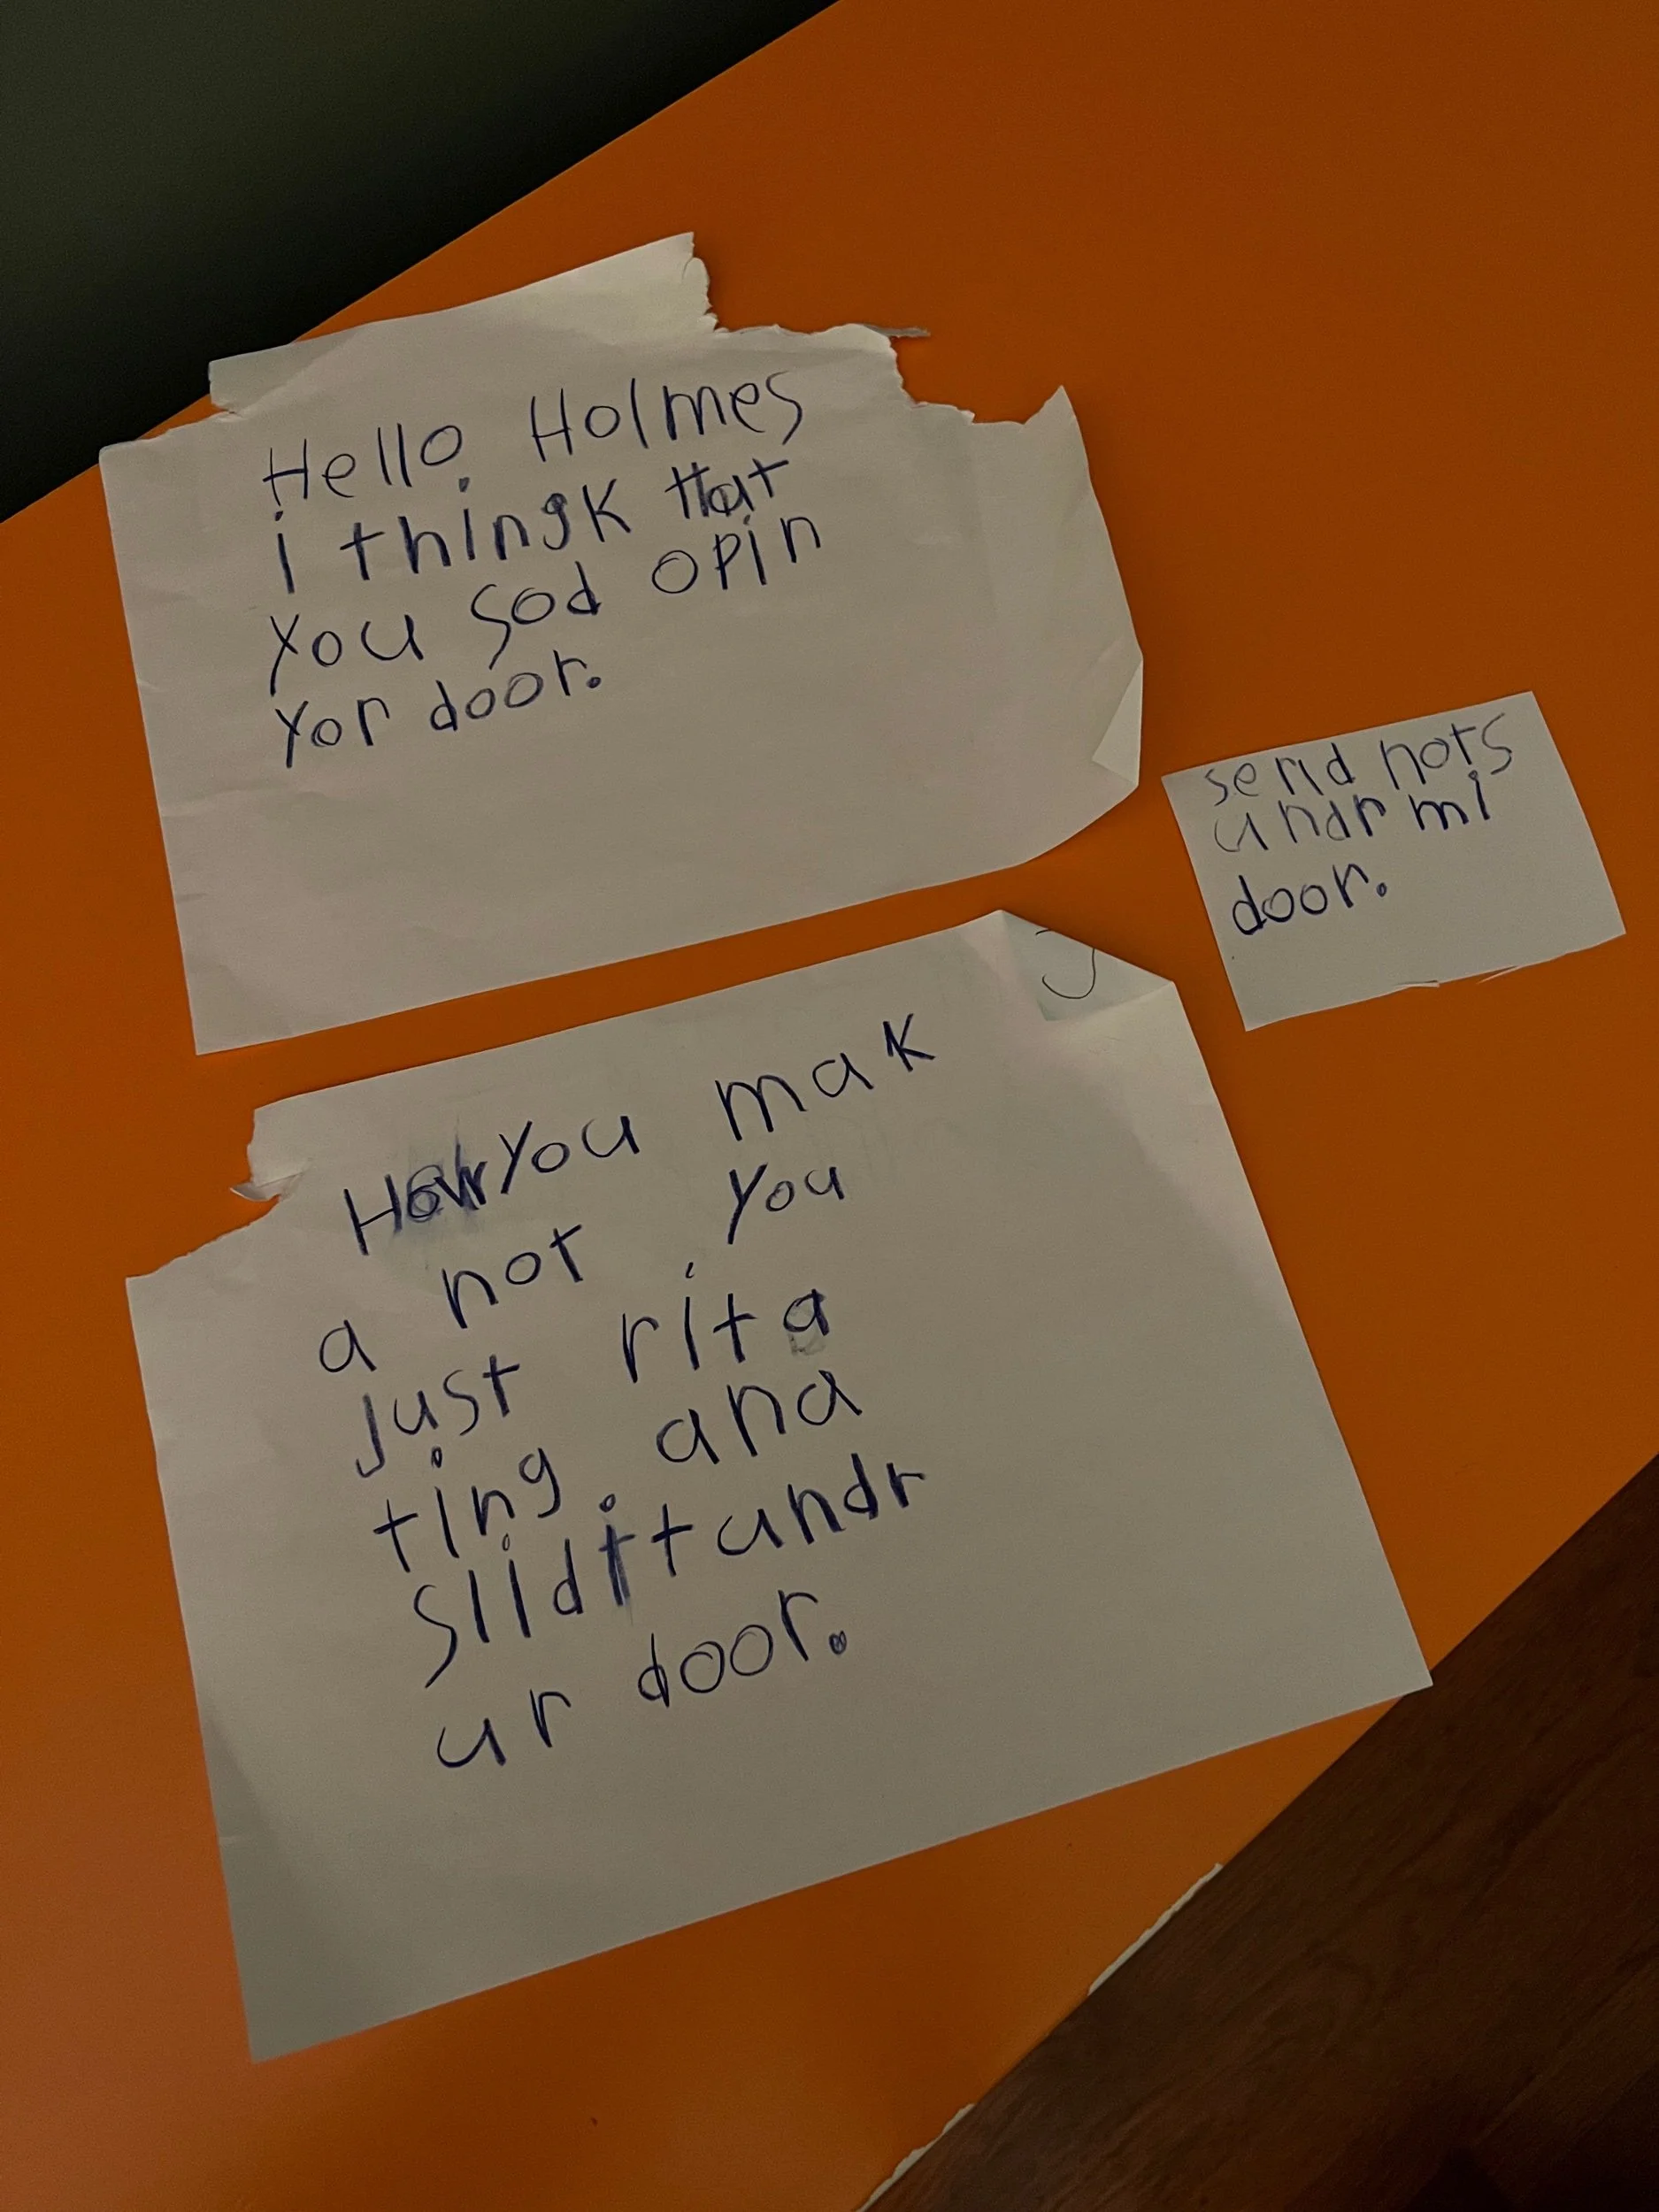 Hello Holmes
i thingk that
you sod opin
yor door.
send nots
undr mi
door.
How you mak
a not you
just rita
ting. and
slidit undr
ur door.